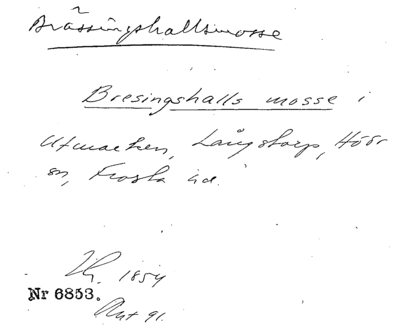 Brässingshallsmosse
Bresingshalls mosse i
Utmarken, Långstorp, Höör
sn, Frosta hd.
1854
Nr 6853.
Akt 91.